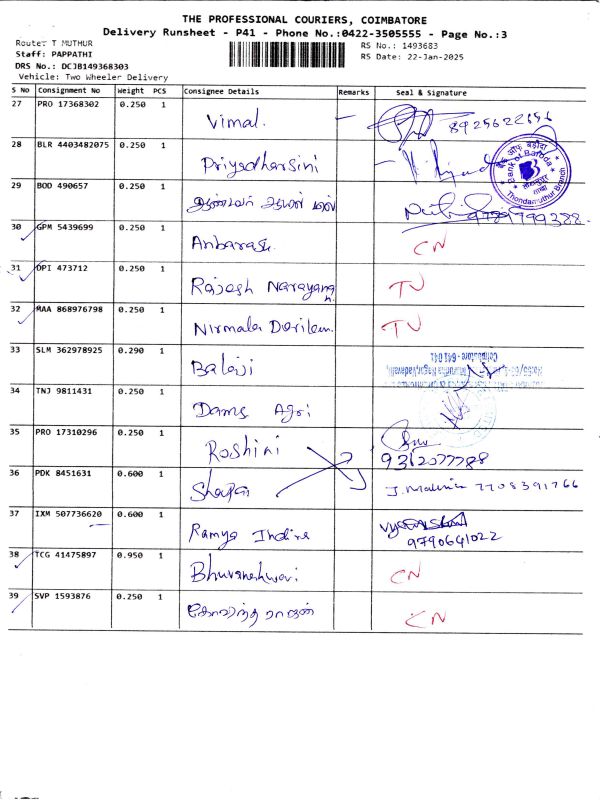 THE PROFESSIONAL COURIERS, COIMBATORE
Delivery Runsheet - P41 - Phone No.:0422-3505555 - Page No.:3
Route: T MUTHUR
RS No.: 1493683
Staff: PAPPATHI
RS Date: 22-Jan-2025
DRS No.: DCJB149368303
Vehicle: Two Wheeler Delivery
S No Consignment No Weight PCS Consignee Details Remarks Seal & Signature
27 PRO 17368302 0.250 1 Vimal. 8925622656
28 BLR 4403482075 0.250 1 Priyadharsini
बैंक ऑफ़ बड़ौदा Bank of Baroda Thondamuthur Branch
29 BOD 490657 0.250 1 9789799388
30 GPM 5439699 0.250 1 Anbarasu. CN
31 OPI 473712 0.250 1 Rajesh Narayanan. TV
32 MAA 868976798 0.250 1 Nirmala TV
33 SLM 362978925 0.290 1 Balaji
Coimbatore - 641 041
34 TNJ 9811431 0.250 1 Dams Agri
35 PRO 17310296 0.250 1 Roshini 9362077788
36 PDK 8451631 0.600 1 J. 7708391766
37 IXM 507736620 0.600 1 Ramya Indira 9790641022
38 TCG 41475897 0.950 1 Bhuvaneshwari CN
39 SVP 1593876 0.250 1 CN